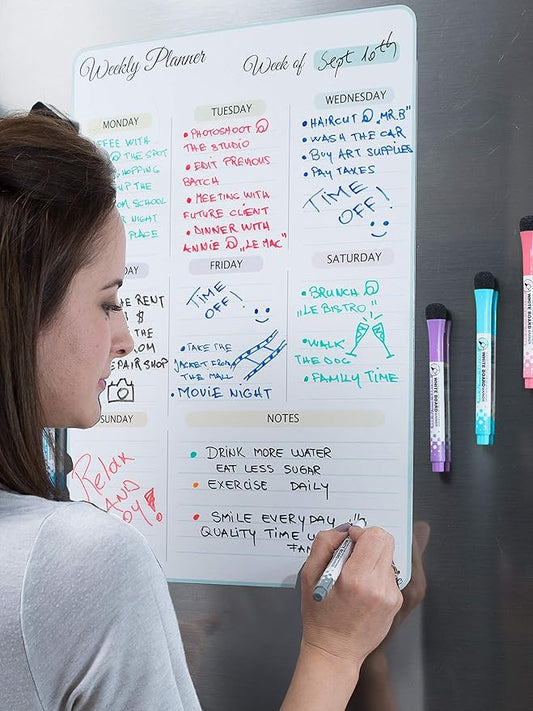 Weekly Planner
Week of Sept 10th
MONDAY
WITH
@ THE SPOT
THE
SCHOOL
NIGHT
PLACE
TUESDAY
• PHOTOSHOOT @
THE STUDIO
• EDIT PREVIOUS
BATCH
• MEETING WITH
FUTURE CLIENT
• DINNER WITH
ANNIE @ „LE MAC"
WEDNESDAY
• HAIRCUT @ „MR.B"
• WASH THE CAR
• BUY ART SUPPLIES
• PAY TAXES
TIME
OFF!
THE RENT
$
THE
SHOP
FRIDAY
TIME
OFF!
• TAKE THE
JACKET FROM
THE MALL
• MOVIE NIGHT
SATURDAY
• BRUNCH @
"LE BISTRO"
• WALK
THE DOG
• FAMILY TIME
SUNDAY
Relax
AND
NOTES
• DRINK MORE WATER
EAT LESS SUGAR
• EXERCISE DAILY
• SMILE EVERYDAY
QUALITY TIME
WHITE BOARD
WHITE BOARD
WHITE BOARD